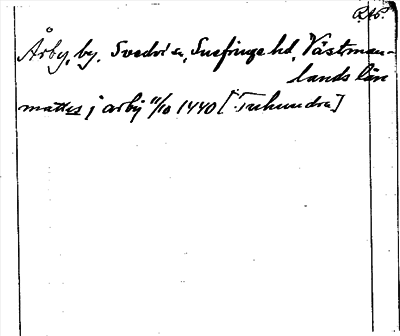 RAp.
Årby, by. Svedvi sn, Snefringe hd, Västman-
lands län
mattes j arby 11/10 1440 [: Tuhundra]